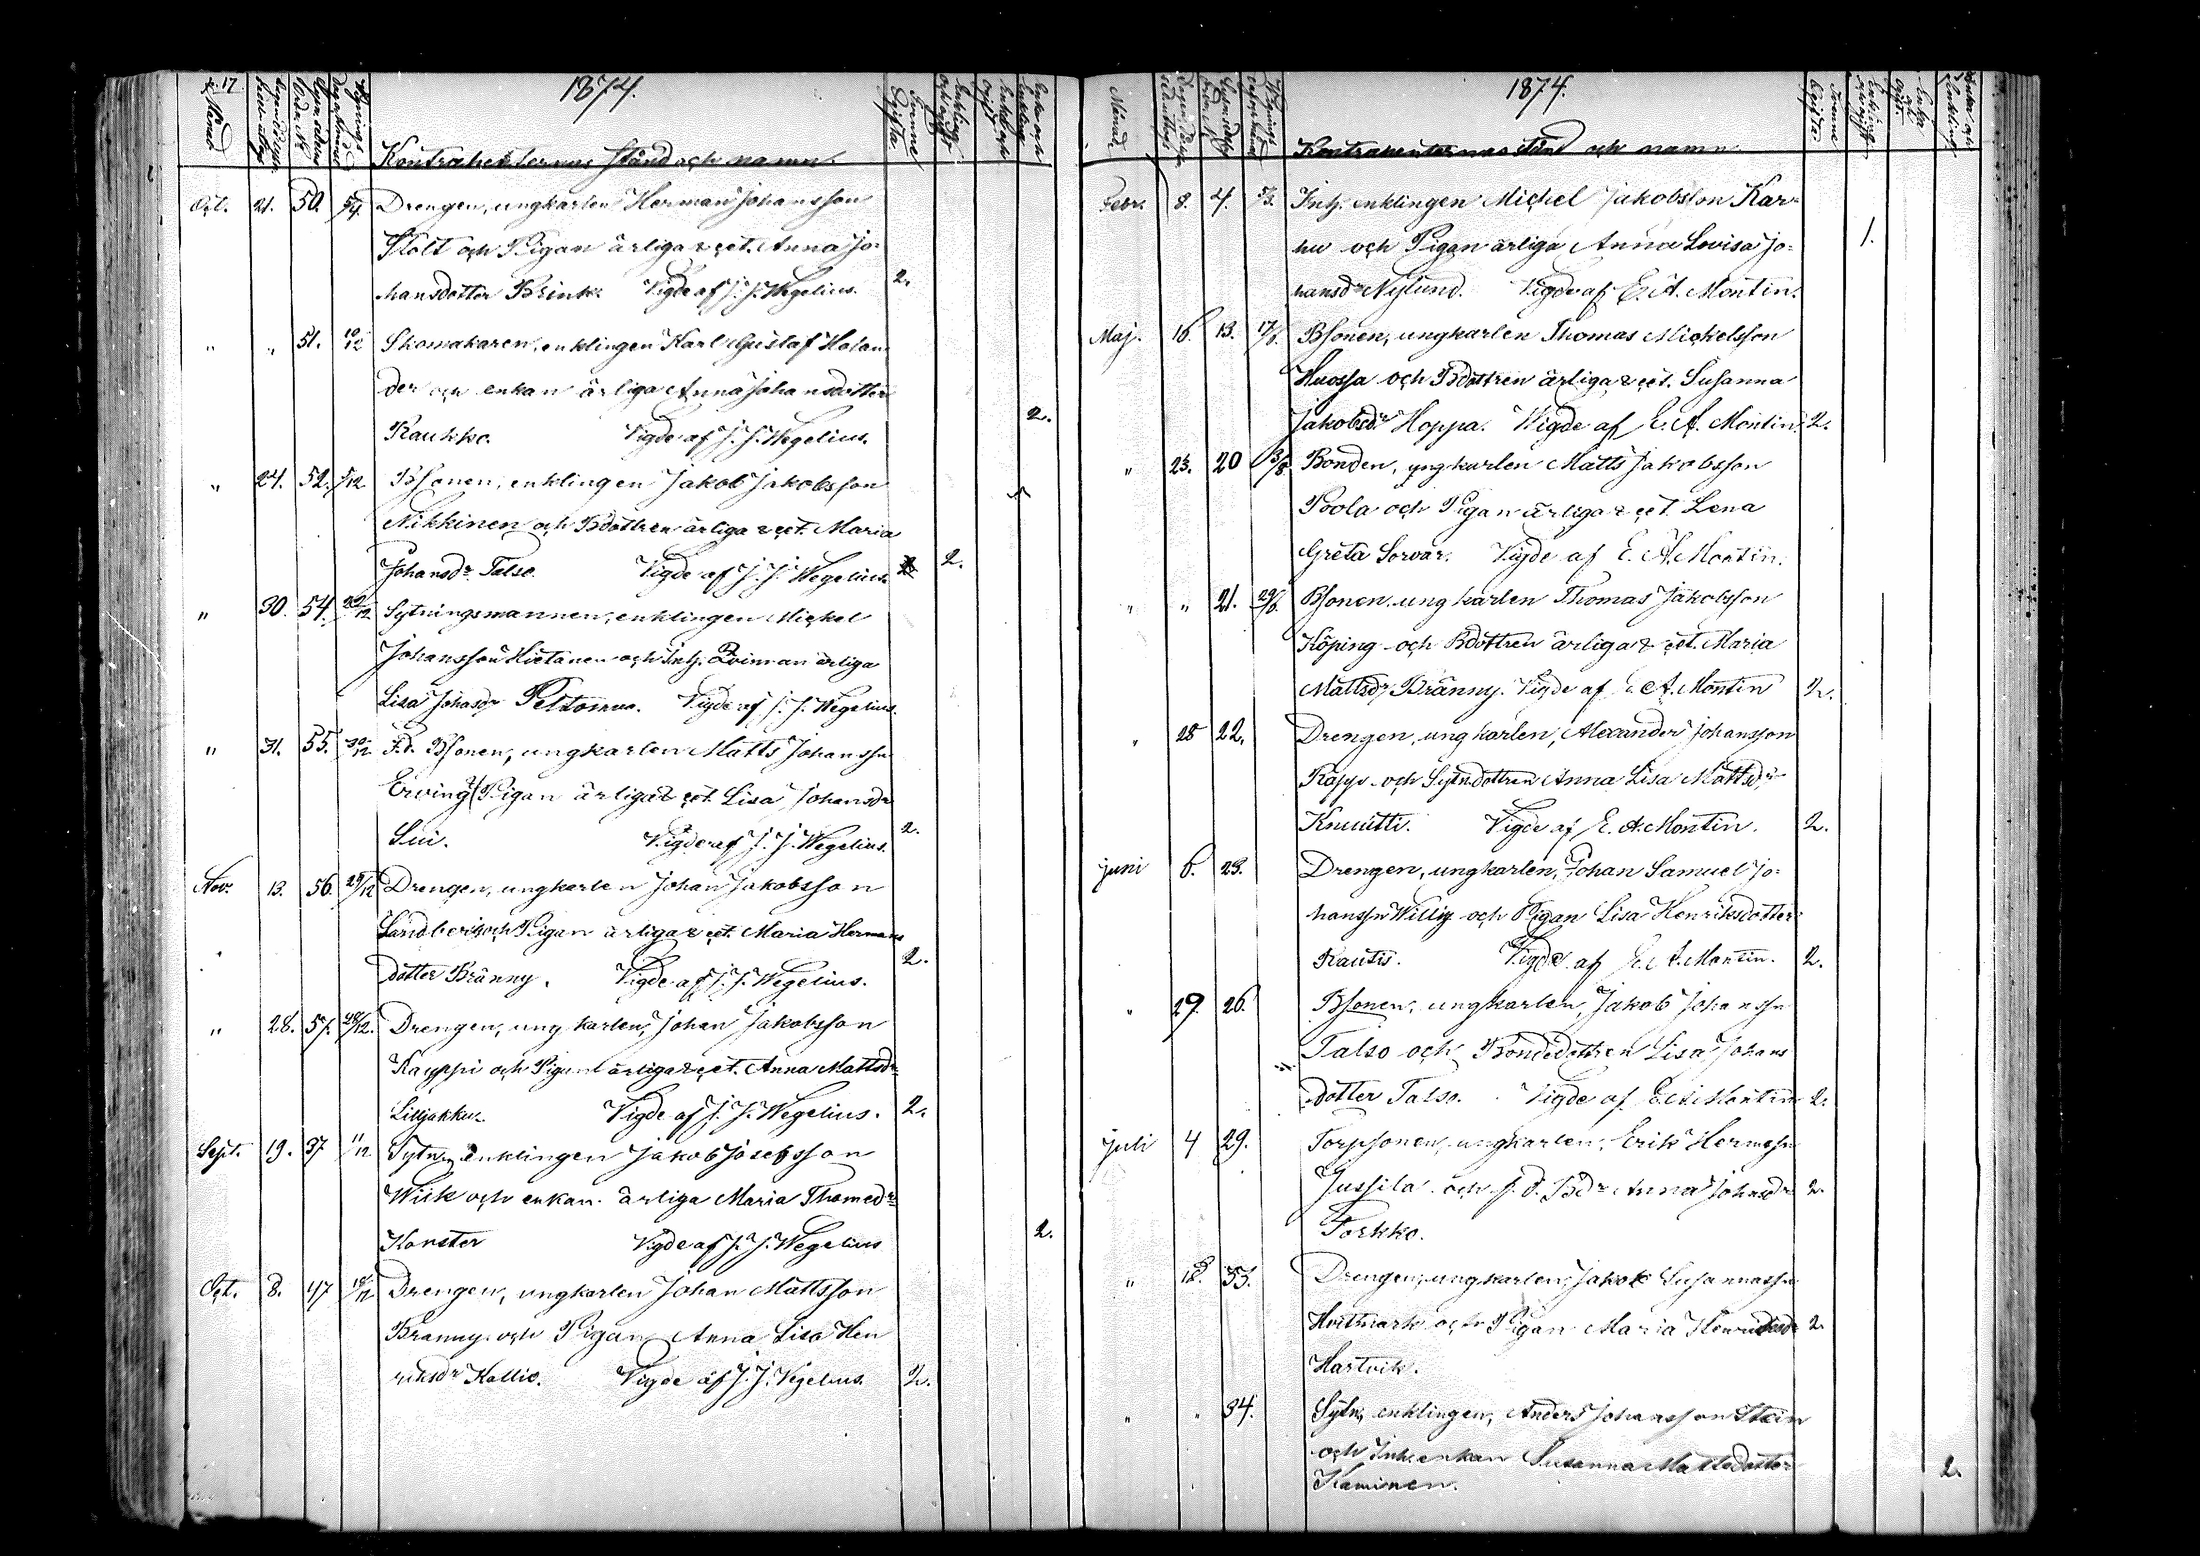 1874.
Kontrahenternas stånd och namn.
Oct. 21. 50. Drengen, ungkarlen Herman Johansson
Stolt och Pigan ärliga &cet. Anna Jo-
hansdotter Brink. Vigde af J. J. Wegelius. 2.
" " 51. 10/12 Skomakaren, enklingen Karl Gustaf Holan
der och enkan ärliga Anna Johansdotter
Raukko. Vigde af J. J. Wegelius. 2.
" 24. 52. 5/12 Bsonen, enklingen Jakob Jakobsson
Nikkinen och Bdottren ärliga &cet. Maria
Johansdr Talso. Vigde af J. J. Wegelius. 2.
" 30. 54. Sytningsmannen, enklingen Mickel
Johansson Hietanen och Inh. Qvinnan ärliga
Lisa Johasdr Peltomaa. Vigde af J. J. Wegelius.
" 31. 55. F.d. Bsonen, ungkarlen Matts Johanssn
Erving Pigan ärliga & cet. Lisa Johansdr
Sui. Vigde af J. J. Wegelius. 2.
Nov. 13. 56. Drengen, ungkarlen Johan Jakobsson
Sandberg och Pigan ärliga &cet. Maria Hermans
dotter Bränny. Vigde af J. J. Wegelius. 2.
" 28. 57. 28/12. Drengen, ungkarlen, Johan Jakobsson
Kauppi och Pigan ärliga &cet. Anna Mattsdr
Liljakku Vigde af J. J. Wegelius. 2.
Sept. 19. 37 11/12 Sytn. enklingen Jakob Josefsson
Wiik och enkan ärliga Maria Thomedr
Konster Vigde af J. J. Wegelius 2.
Oct. 8. 47 Drengen, ungkarlen Johan Mattsson
Bränny och Pigan Anna Lisa Hen
riksdr Kallio. Vigde af J. J. Wegelius. 2.
1874.
Kontrahenternas stånd och namn
Febr. 8. 4. Inh. enklingen Mickel Jakobsson Kar-
hu och Pigan ärliga Anna Lovisa Jo- 1.
hansdr Nylund. Vigde af E. A. Montin.
Maj. 16. 13. Bsonen, ungkarlen Thomas Mickelsson
Huossa och Bdottren ärliga &cet. Susanna
Jakobsdr Hoppa. Wigde af E. A. Montin. 2.
" 23. 20 Bonden, ungkarlen Matts Jakobsson
Poola och Pigan ärliga & cet. Lena
Greta Sorvar. Vigde af E. A. Montin.
" " 21. Bsonen, ungkarlen Thomas Jakobsson
Köping och Bdottren ärliga & cet. Maria
Mattsdr Bränny. Vigde af E. A. Montin 2.
" 28 22. Drengen, ungkarlen, Alexander Johansson
Rapp och Sytn.dottren Anna Lisa Mattsdr
Knuutti. Vigde af E. A. Montin. 2.
Juni 6. 23. Drengen, ungkarlen, Johan Samuel Jo-
hanssn Willig och Pigan Lisa Henriksdotter
Rautis. Vigde af E. A. Montin. 2.
" 29. 26. Bsonen, ungkarlen, Jakob Johanssn
Talso och Bondedottren Lisa Johans
dotter Talso. Vigde af E. A. Montin 2.
Juli 4 29. Torpsonen, ungkarlen, Erik Hermssn
Jussila och f. d. Bdr Anna Johansdr 2.
Torkko.
" 18. 33. Drengen, ungkarlen, Jakob Susannassn
Hortmark och Pigan Maria Henriksdr 2.
Hartvik.
" " 34. Sytn. enklingen, Anders Johansson Stein
och Inh. enkan Susanna Mattsdotter 2.
Kaminen.